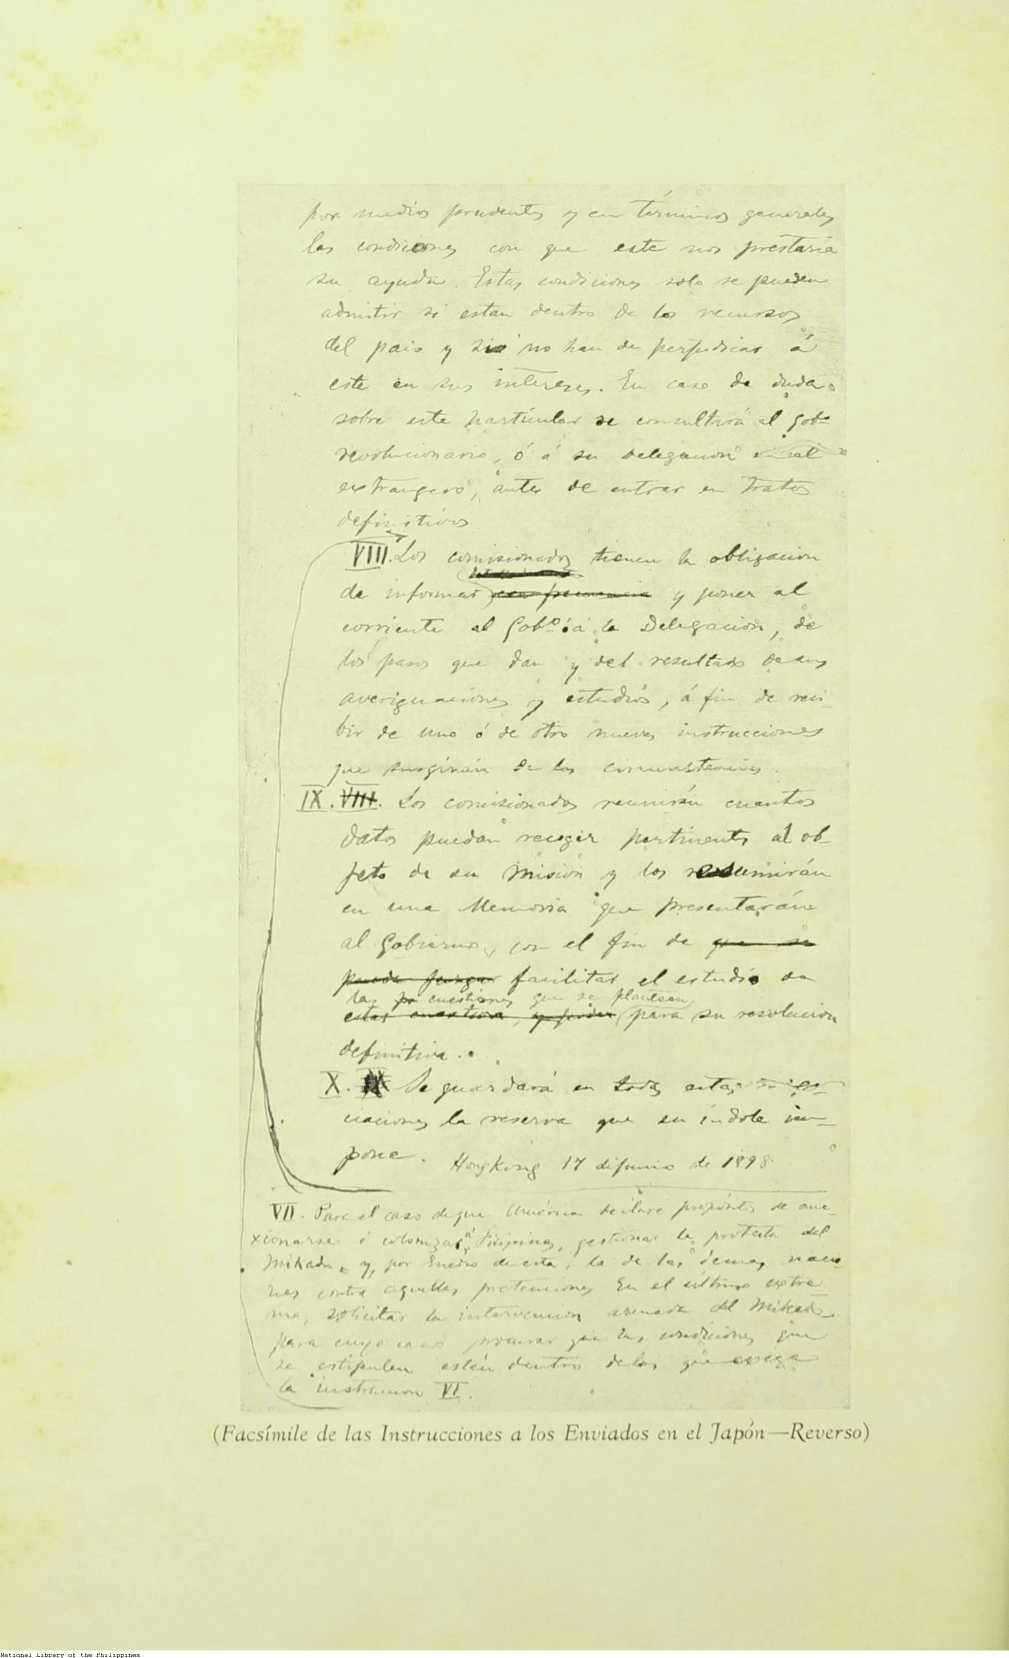 por medios prudentes y en términos generales
las condiciones con que este nos prestaria
su ayuda. Estas condiciones solo se pueden
admitir si estan dentro de los recursos
del pais y si no han de perjudicar á
este en sus intereses. En caso de duda
sobre este particular se consultará al Gobº
revolucionario, ó á su Delegacion en el
extrangero, antes de entrar en tratos
definitivos
VIII. Los comisionados tienen la obligacion
de informar con frecuencia y poner al
corriente al Gobº ó á la Delegación, de
los pasos que dan y del resultado de sus
averiguaciones y estudios, á fin de reci-
bir de uno ó de otro nuevas instrucciones
que surgirán de las circunstancias.
IX. VIII. Los comisionados reunirán cuantos
datos puedan recoger pertinentes al ob-
jeto de su Misión y los resumirán
en una Memoria que presentarán
al Gobierno, con el fin de que se
pueda juzgar facilitar el estudio de
las cuestiones que se plantean
estas cuestiones, y poder para su resolucion
definitiva.
X. IX Se guardará en todas estas nego-
ciaciones la reserva que su índole im-
pone. Hongkong 17 de junio de 1898
VII. Para el caso de que América declare propósitos de ane-
xionarse ó colonizar Filipinas, gestionar la protesta del
Mikado, y, por medio de esta, la de las demas nacio-
nes contra aquellas pretenciones. En el último extre-
mo, solicitar la intervencion armada del Mikado
para cuyo caso procurar que las condiciones que
se estipulen estén dentro de las que exige
la instruccion VI.
(Facsímile de las Instrucciones a los Enviados en el Japón—Reverso)
National Library of the Philippines